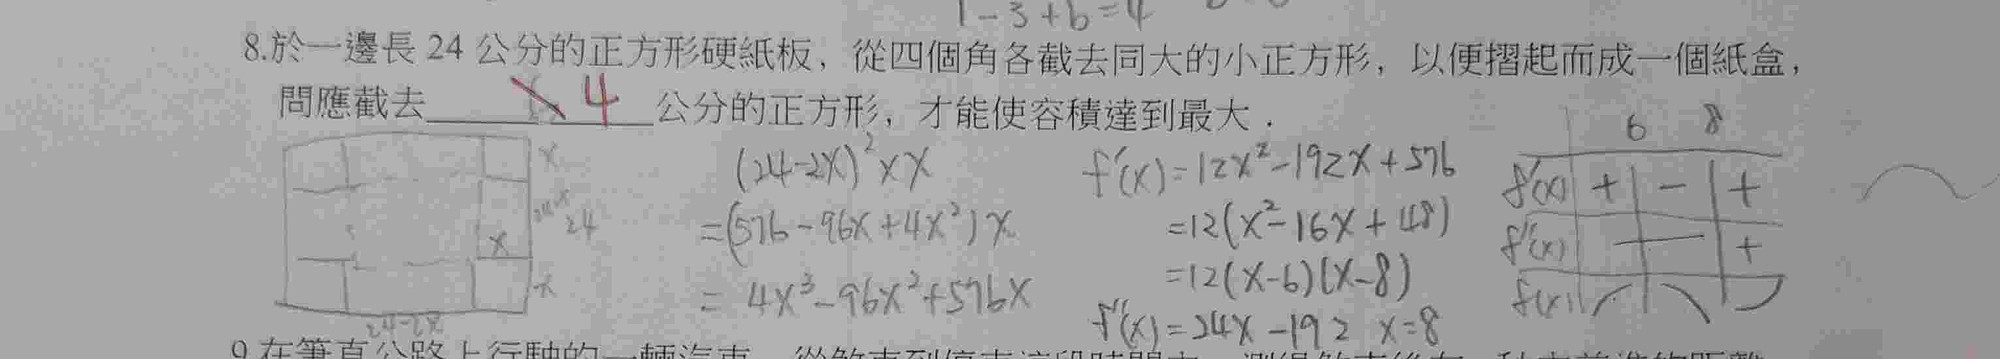 1-3+b=4
8.於一邊長 24 公分的正方形硬紙板，從四個角各截去同大的小正方形，以便摺起而成一個紙盒，
問應截去 4 公分的正方形，才能使容積達到最大．
x
24
x
x
24-2x
(24-2x)²×x
=(576-96x+4x²)x
=4x³-96x²+576x
f'(x)=12x²-192x+576
=12(x²-16x+48)
=12(x-6)(x-8)
f''(x)=24x-192 x=8
6 8
f'(x) + - +
f''(x) - +
f(x)
9.在筆直公路上行駛的一輛汽車，從煞車到停車這段時間內，測得煞車後